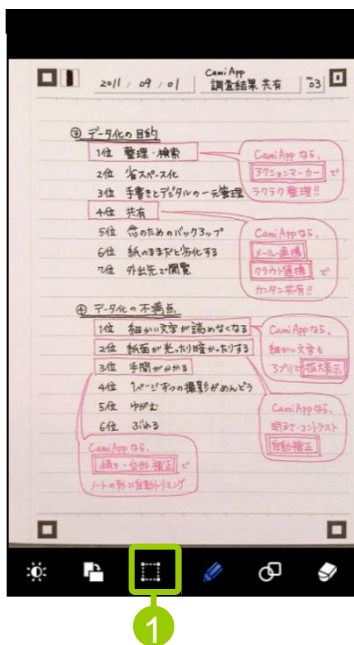 2011 / 09 / 01
CamiApp
調査結果共有
03
③ データ化の目的
1位 整理・検索
2位 省スペース化
3位 手書きとデジタルの一元管理
4位 共有
5位 念のためのバックアップ
6位 紙のままだと劣化する
7位 外出先で閲覧
CamiAppなら、
アクションマーカーで
ラクラク整理!!
CamiAppなら、
メール連携
クラウド連携で
カンタン共有!!
④ データ化の不満点
1位 細かい文字が読めなくなる
2位 紙面が光ったり暗かったりする
3位 手間がかかる
4位 1ページずつの撮影がめんどう
5位 ゆがむ
6位 ぶれる
CamiAppなら、
細かい文字も
アプリで拡大表示
CamiAppなら、
明るさ・コントラスト
自動補正
CamiAppなら、
傾き・台形補正で
ノートの形に自動トリミング
1